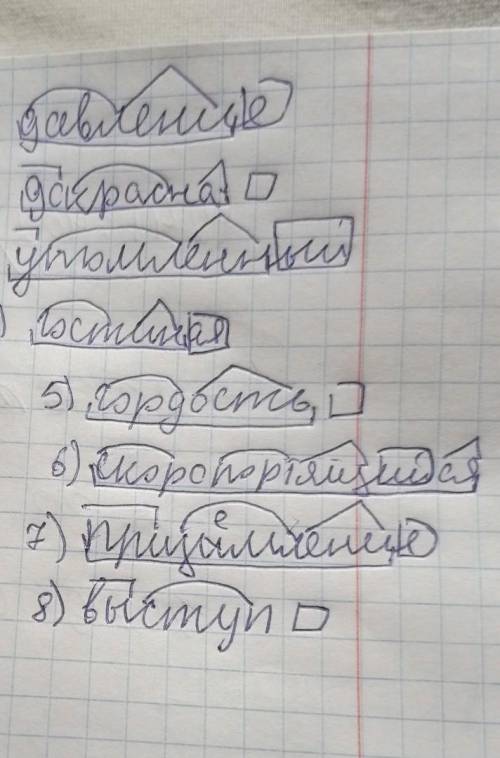 давление
докрасна
утомленный
) гостиная
5) гордость
6) скоропортящийся
7) приземление
8) выступ